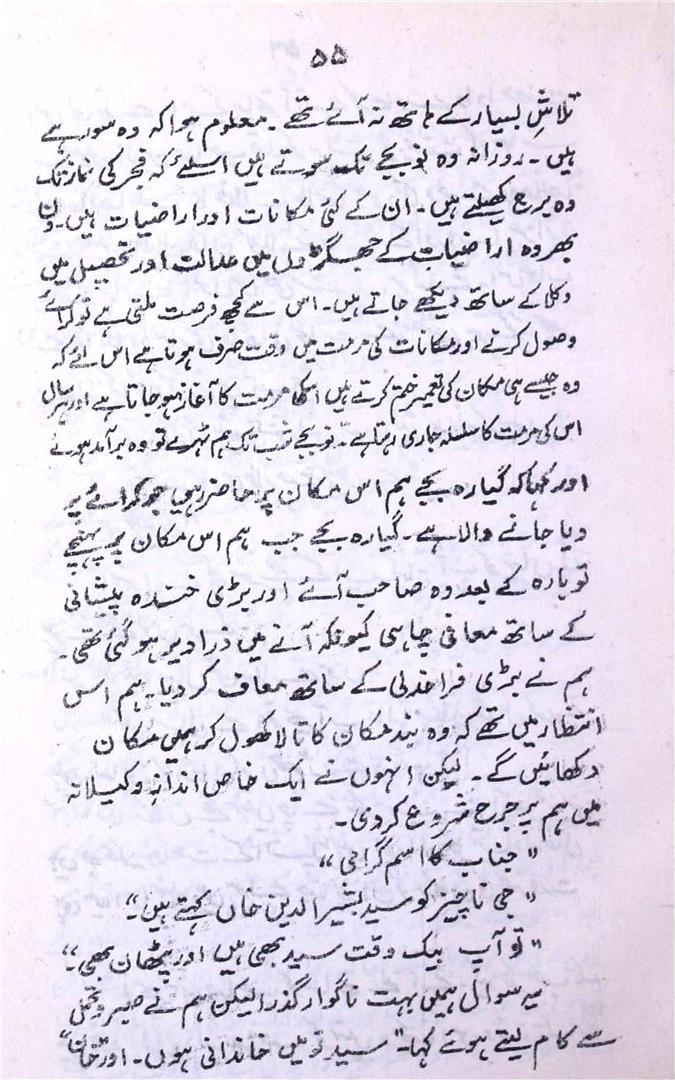 ۵۵
تلاشِ بسیار کے ہاتھ نہ آئے تھے ۔ معلوم ہوا کہ وہ سو رہے
ہیں ۔ روزانہ وہ نو بجے تک سوتے ہیں اسلئے کہ فجر کی نماز تک
وہ برج کھیلتے ہیں ۔ ان کے کئی مکانات اور اراضیات ہیں ۔ دن
بھر وہ اراضیات کے جھگڑوں میں عدالت اور تحصیل میں
وکلا کے ساتھ دیکھے جاتے ہیں ۔ اس سے کچھ فرصت ملتی ہے تو کرائے
وصول کرنے اور مکانات کی مرمت میں وقت صرف ہوتا ہے اس لئے کہ
وہ جیسے ہی مکان کی تعمیر ختم کرتے ہیں اسکی مرمت کا آغاز ہو جاتا ہے اور ہر سال
اس کی مرمت کا سلسلہ جاری رہتا ہے ۔ نو بجے شب تک ہم ٹہرے تو وہ برآمد ہوئے
اور کہا کہ گیارہ بجے ہم اس مکان پر حاضر رہیں جو کرائے پر
دیا جانے والا ہے ۔ گیارہ بجے جب ہم اس مکان پر پہنچے
تو بارہ کے بعد وہ صاحب آئے اور بڑی خندہ پیشانی
کے ساتھ معافی چاہی کیونکہ آنے میں ذرا دیر ہو گئی تھی ۔
ہم نے بڑی فراخدلی کے ساتھ معاف کر دیا ۔ ہم اس
انتظار میں تھے کہ وہ بند مکان کا تالا کھول کر ہمیں مکان
دکھائیں گے ۔ لیکن انہوں نے ایک خاص اندازِ وکیلانہ
میں ہم پر جرح شروع کر دی ۔
" جناب کا اسم گرامی "
" جی ناچیز کو سید بشیر الدین خاں کہتے ہیں "۔
" تو آپ بیک وقت سید بھی ہیں اور پٹھان بھی "۔
یہ سوال ہمیں بہت ناگوار گذرا لیکن ہم نے صبر و تحمل
سے کام لیتے ہوئے کہا ۔ " سید تو میں خاندانی ہوں ۔ اور خان "